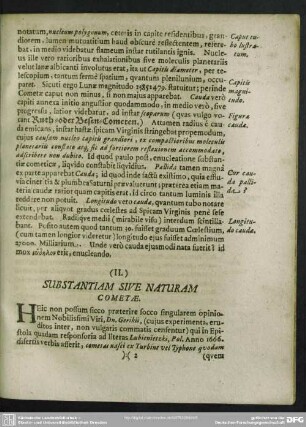 notatum, nucleum polygonum, ceteris in capite residentibus, gran-
diorem, lumen mutatitium haud obscure reflectentem, refere-
bat, in medio videbatur flameum instar rutilantis ignis. Nucle-
us ille vero ratioribus exhalationibus sive moleculis planetariis
velut lare albicanti involutus erat, ita ut Capitis diameter, per te-
lescopium, tantum fermè spatium, quantum plenilunium, occu-
paret. Sicuti ergo Luna magnitudo statuitur; perinde
Cometæ caput non minus, si non majus apparebat. Cauda verò
capiti annexa initio angustior quodammodo, in medio verò, sive
progressu, latior videbatur, ad instar scoparum (quas vulgo vo-
cant Ruth- oder Besen-Cometen.) Attamen radius è cau-
da emicans, instar hastæ, spicam Virginis stringebat propemodum,
cujus causam nucleo capitis grandiori, ex compactioribus moleculis
planetariis constato arg, sic ad fortiorem reflexionem accommodato,
adscribere non dubito. Id quod paulo post, enucleatione substan-
tiæ cometicæ, liquido constabit liquidius. Pallida tamen magna
ex parte apparebat Cauda; id quod inde factû existimo, quia efflu-
via cinericia & plumbea Saturni prævaluerunt; præterea etiam ma-
teria caudæ rarior quam capitis erat, id circo tantum luminis illa
reddere non potuit. Longitudo vero cauda, quantum tubo notare
licuit, per aliquot gradus cœlestes ad Spicam Virginis pene sese
extendebat. Radiique medii (mirabile visu) interdum scintilla-
bant. Posito autem quod tantum 10. fuisset graduum Cœlestium,
(cum tamen longior videretur) longitudo ejus fuisset ad minimum
Milliarium. Unde verò cauda ejusmodi nata fuerit? id
mox enucleando.
Caput tubo lustratum.
Capitis magnitudo.
Figura cauda.
Cur cauda pallida?
Longitudo cauda.
(II.)
SUBSTANTIAM SIVE NATURAM
COMETÆ.
Hîic non possum sicco præterire socco singularem opinio-
nem Nobilissimi Viri, Dn. Gerikii, (cujus experimenta, eru-
ditos inter, non vulgaris commatis censentur) qui in Epi-
stola quadam responsoria ad literas Lubienietzki, Pol. Anno 1666.
disertis verbis asserit, cometas nasci ex Turbine vel Typhone quodam
)( 2
(quem